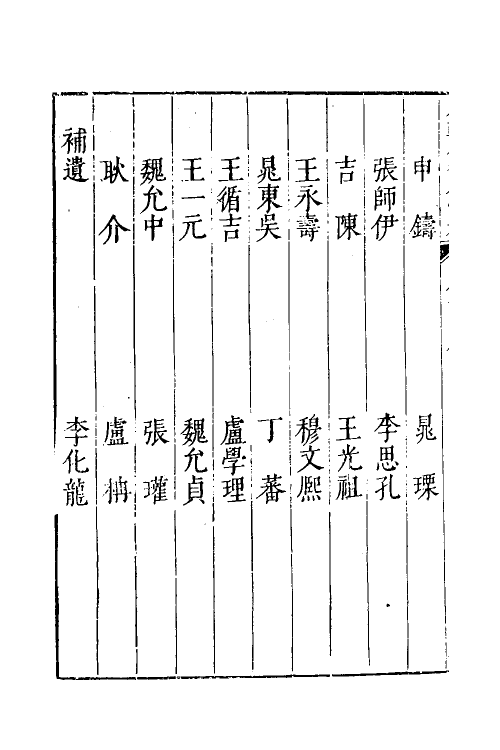 申鑄 晁瑮
張師伊 李思孔
吉陳 王光祖
王永壽 穆文熈
晁東吳 丁蕃
王循吉 盧學理
王一元 魏允貞
魏允中 張瓘
耿介 盧柟
補遺 李化龍